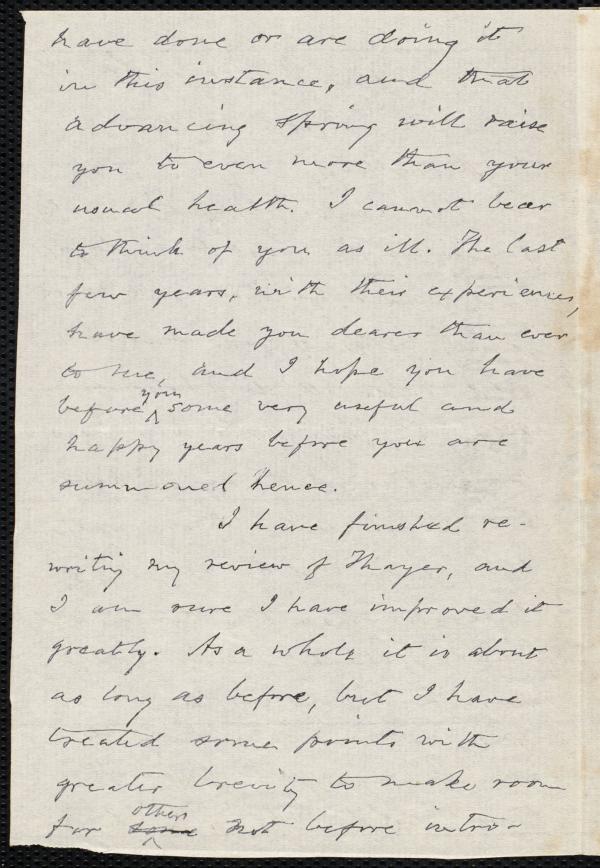 have done or are doing it
in this instance, and that
advancing spring will raise
you to even more than your
usual health. I cannot bear
to think of you as ill. The last
few years, with their experiences,
have made you dearer than ever
to me, and I hope you have
before you some very useful and
happy years before you are
summoned hence.
I have finished re-
writing my review of Thayer, and
I am sure I have improved it
greatly. As a whole it is about
as long as before, but I have
treated some points with
greater brevity to make room
for others not before intro-